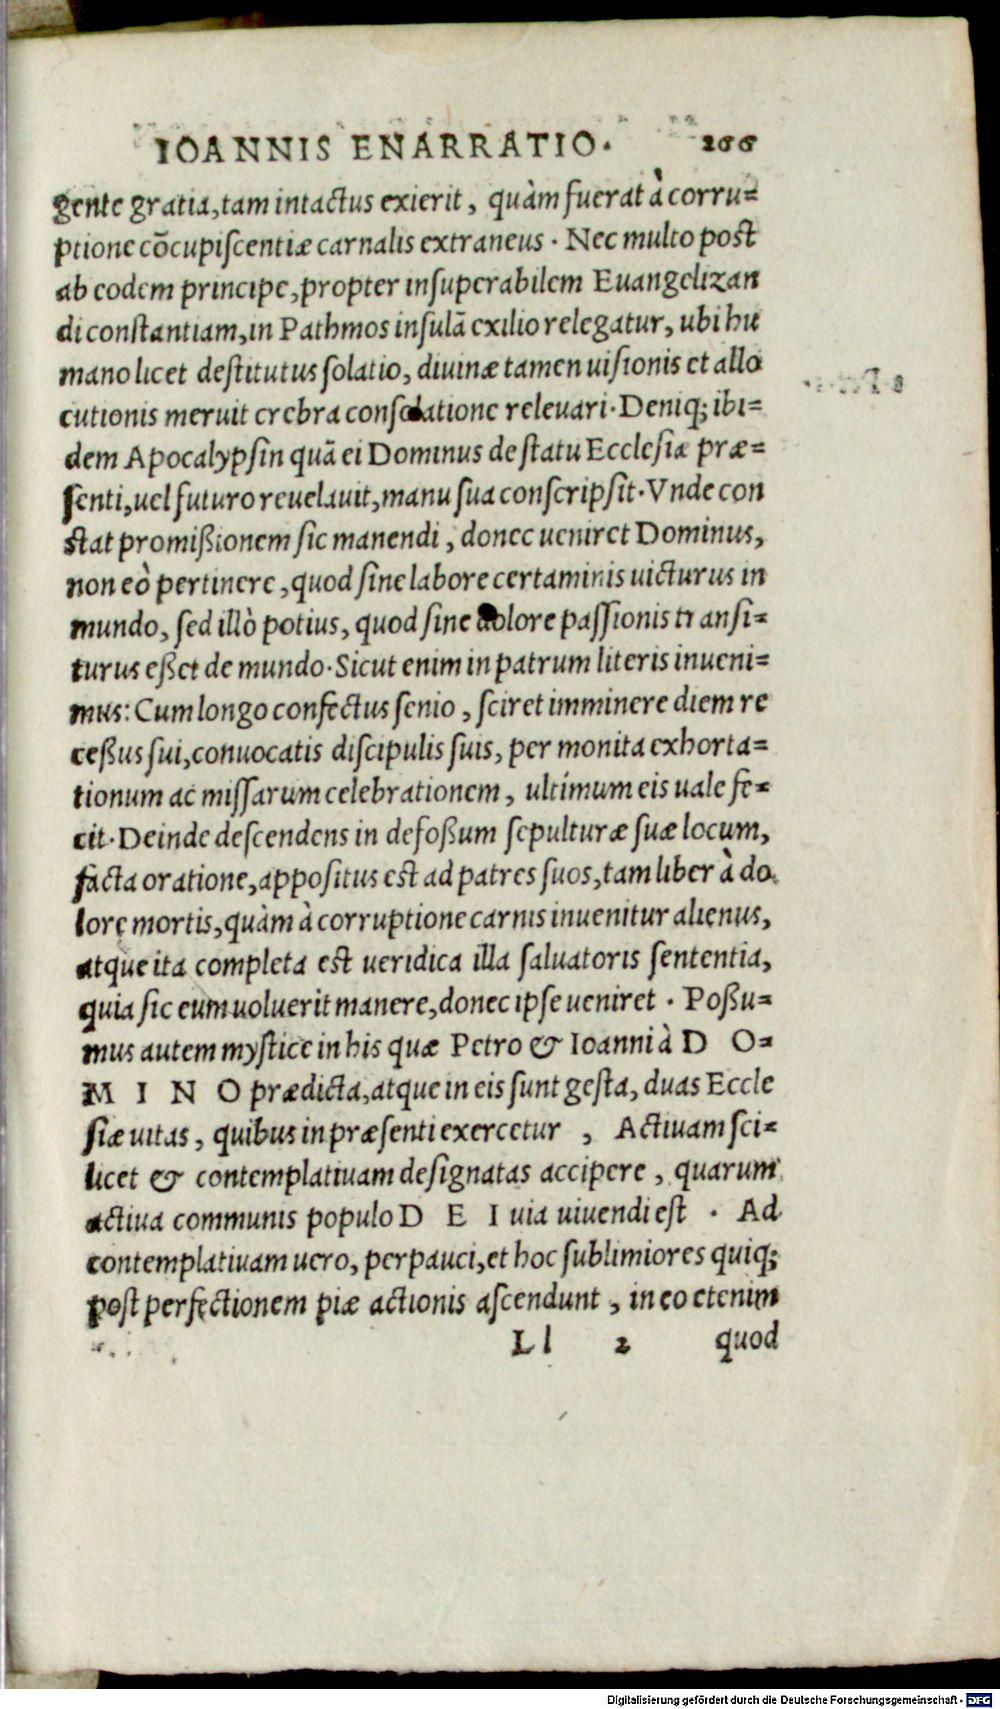 IOANNIS ENARRATIO. 266
gente gratia, tam intactus exierit, quàm fuerat à corru=
ptione cōcupiſcentiæ carnalis extraneus. Nec multo post
ab eodem principe, propter inſuperabilem Euangelizan
di constantiam, in Pathmos inſulā exilio relegatur, ubi hu
mano licet destitutus ſolatio, diuinæ tamen uiſionis et allo
cutionis meruit crebra conſolatione releuari. Deniq; ibi=
dem Apocalypſin quā ei Dominus de ſtatu Eccleſiæ præ=
ſenti, uel futuro reuelauit, manu ſua conſcripſit. Vnde con
ſtat promißionem ſic manendi, donec ueniret Dominus,
non eò pertinere, quod ſine labore certaminis uicturus in
mundo, ſed illò potius, quod ſine dolore paſſionis tranſi=
turus eßet de mundo. Sicut enim in patrum literis inueni=
mus: Cum longo confectus ſenio, ſciret imminere diem re
ceßus ſui, conuocatis diſcipulis ſuis, per monita exhorta=
tionum ac miſſarum celebrationem, ultimum eis uale fe=
cit. Deinde deſcendens in defoßum ſepulturæ ſuæ locum,
facta oratione, appoſitus est ad patres ſuos, tam liber à do
lore mortis, quàm à corruptione carnis inuenitur alienus,
atque ita completa est ueridica illa ſaluatoris ſententia,
quia ſic eum uoluerit manere, donec ipſe ueniret. Poßu=
mus autem mystice in his quæ Petro & Ioanni à D O=
M I N O prædicta, atque in eis ſunt geſta, duas Eccle
ſiæ uitas, quibus in præſenti exercetur, Actiuam ſci=
licet & contemplatiuam deſignatas accipere, quarum
actiua communis populo D E I uia uiuendi est. Ad
contemplatiuam uero, perpauci, et hoc ſublimiores quiq;
poſt perfectionem piæ actionis aſcendunt, in eo etenim
Ll 2 quod
Digitalisierung gefördert durch die Deutsche Forschungsgemeinschaft - DFG